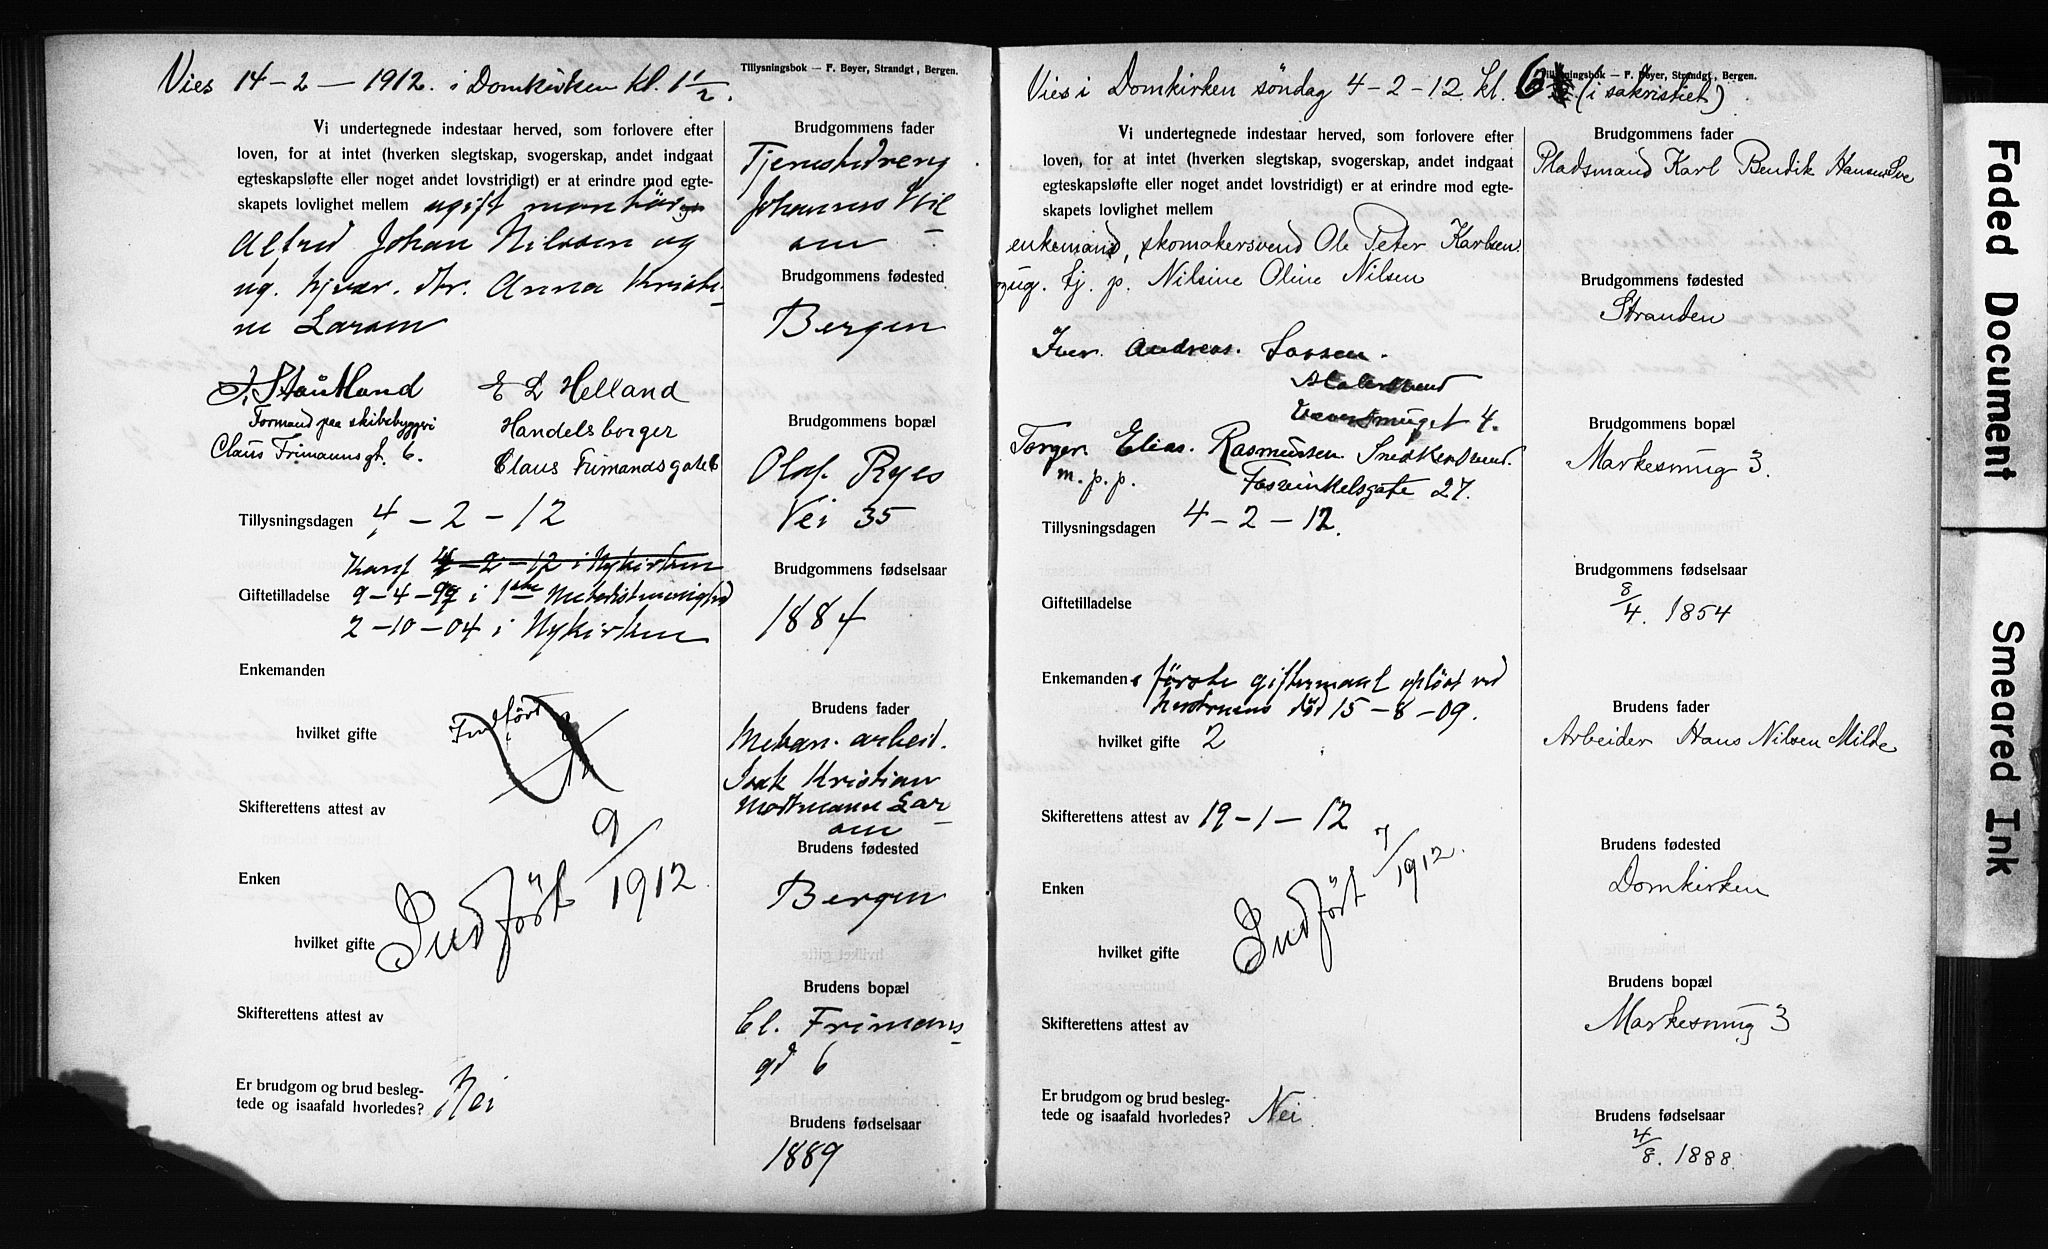 Vies 14-2-1912. i Domkirken kl. 1 1/2.
Tillysningsbok — F. Beyer, Strandgt., Bergen.
Vi undertegnede indestaar herved, som forlovere efter
loven, for at intet (hverken slegtskap, svogerskap, andet indgaat
egteskapsløfte eller noget andet lovstridigt) er at erindre mod egte-
skapets lovlighet mellem ugift montör
Alfred Johan Nilssen og
ug. hjvær. dtr. Anna Kristi-
ne Larsen
J. Stautland
Formand paa skibsbyggeri
Claus Frimannsgt. 6.
E L Helland
Handelsborger
Claus Frimandsgate 6
Tillysningsdagen 4-2-12
Konf 4-2-12 i Nykirken
Giftetilladelse 9-4-99 i 1ste Metodistmenighed
2-10-04 i Nykirken
Enkemanden
hvilket gifte
Indført
Skifterettens attest av
Enken
Indført 9/1912.
hvilket gifte
Skifterettens attest av
Er brudgom og brud besleg-
tede og isaafald hvorledes? Nei
Brudgommens fader
Tjenestedreng
Johannes Nil-
sen
Brudgommens fødested
Bergen
Brudgommens bopæl
Olaf Ryes
Vei 35
Brudgommens fødselsaar
1884
Brudens fader
Mekan. arbeid.
Isak Kristian
Mortmann Lar-
sen
Brudens fødested
Bergen
Brudens bopæl
Cl. Frimans-
gd 6
Brudens fødselsaar
1889
Vies i Domkirken søndag 4-2-12 kl. 6 (i sakristiet)
Tillysningsbok — F. Beyer, Strandgt., Bergen.
Vi undertegnede indestaar herved, som forlovere efter
loven, for at intet (hverken slegtskap, svogerskap, andet indgaat
egteskapsløfte eller noget andet lovstridigt) er at erindre mod egte-
skapets lovlighet mellem
enkemand, skomakersvend Ole Peter Karlsen
og ug. tj. p. Nilsine Oline Nilsen
Iver Andreas Larsen.
Malersvend
Væversmuget 4.
Torger Elias Rasmussen Snedkersvend.
m. p. p. Fosswinkelsgate 27.
Tillysningsdagen 4-2-12.
Giftetilladelse
Enkemandens første giftermaal opløst ved
hustruens død 15-8-09.
hvilket gifte 2
Skifterettens attest av 19-1-12
Enken
Indført 7/1912.
hvilket gifte
Skifterettens attest av
Er brudgom og brud besleg-
tede og isaafald hvorledes? Nei
Brudgommens fader
Pladsmand Karl Bendik Hansen Sve
Brudgommens fødested
Stranden
Brudgommens bopæl
Markesmug 3.
Brudgommens fødselsaar
8/4. 1854
Brudens fader
Arbeider Hans Nilsen Milde
Brudens fødested
Domkirken
Brudens bopæl
Markesmug 3
Brudens fødselsaar
4/8. 1888.
Faded Document
Smeared Ink